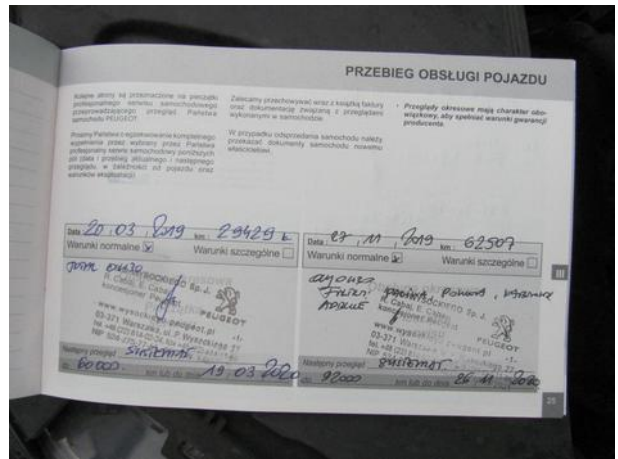 PRZEBIEG OBSŁUGI POJAZDU
Kolejne strony są przeznaczone na pieczątki
profesjonalnego serwisu samochodowego
przeprowadzającego przegląd Państwa
samochodu PEUGEOT.
Prosimy Państwa o egzekwowanie kompletnego
wypełnienia przez wybrany przez Państwa
profesjonalny serwis samochodowy poniższych
pól (data i przebieg aktualnego i następnego
przeglądu, w zależności od pojazdu oraz
warunków eksploatacji).
Zalecamy przechowywać wraz z książką faktury
oraz dokumentację związaną z przeglądami
wykonanymi w samochodzie.
W przypadku odsprzedania samochodu należy
przekazać dokumenty samochodu nowemu
właścicielowi.
- Przeglądy okresowe mają charakter obo-
wiązkowy, aby spełniać warunki gwarancji
producenta.
Data 20, 03, 2019 km: 29429
Warunki normalne Warunki szczególne
WYSOCKIEGO Sp. J.
R. Cabaj, E. Cabaj
koncesjoner Peugeot
PEUGEOT
03-371 Warszawa, ul. P. Wysockiego
Następny przegląd SYSTEMAT.
do: 60000 km lub do dnia 19 03 2020
Data 27, 11, 2019 km: 62507
Warunki normalne Warunki szczególne
R. Cabaj, E. Cabaj
PEUGEOT
03-371
Następny przegląd SYSTEMAT.
do: 92000 km lub do dnia 26 11 2020
III
25